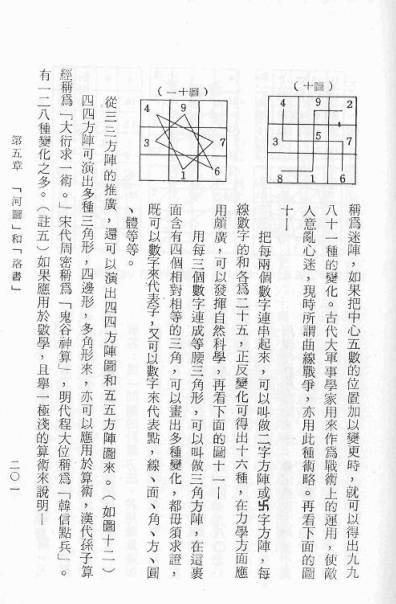 稱爲迷陣，如果把中心五數的位置加以變更時，就可以得出九九
八十一種的變化。古代大軍事學家用來作爲戰術上的運用，使敵
人意亂心迷，現時所謂曲線戰爭，亦用此種術略。再看下面的圖
十—
（圖十）
4 9 2
3 5 7
8 1 6
把每兩個數字連串起來，可以叫做二字方陣或卐字方陣，每
線數字的和各爲二十五，正反變化可得出十六種，在力學方面應
用頗廣，可以發揮自然科學，再看下面的圖十一—
（圖十一）
4 9
3 7
1 6
用每三個數字連成等腰三角形，可以叫做三角方陣，在這裏
面含有四個相對相等的三角，可以畫出多種變化，都毋須求證，
既可以數字來代表字，又可以數字來代表點，線、面、角、方、圓
、體等等。
從三三方陣的推廣，還可以演出四四方陣圖和五五方陣圖來。（如圖十二）
四四方陣可演出多種三角形，四邊形，多角形來，亦可以應用於算術，漢代孫子算
經稱爲「大衍求一術。」宋代周密稱爲「鬼谷神算」，明代程大位稱爲「韓信點兵」。
有一二八種變化之多。（註五）如果應用於數學，且舉一極淺的算術來說明—
第五章　「河圖」和「洛書」
二〇一